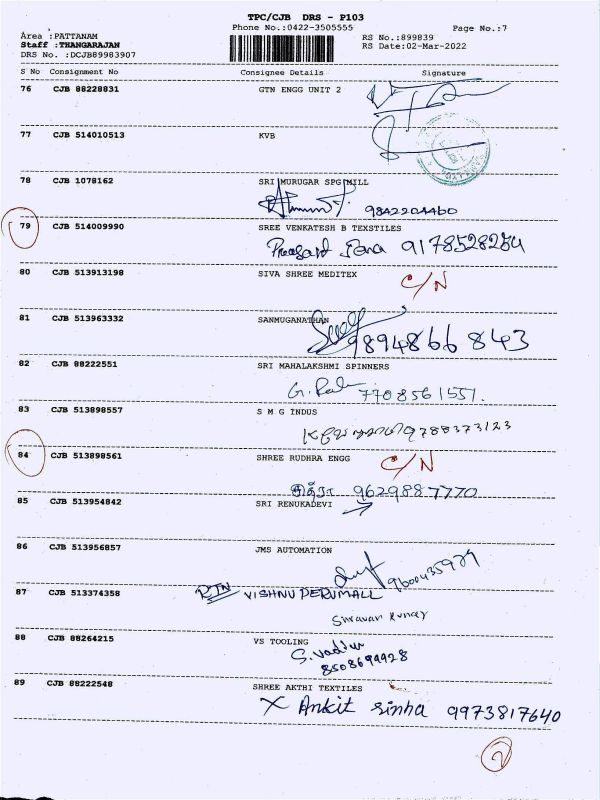 TPC/CJB DRS - P103
Phone No.:0422-3505555 Page No.:7
Area :PATTANAM RS No.:899839
Staff :THANGARAJAN RS Date:02-Mar-2022
DRS No. :DCJB89983907
S No Consignment No Consignee Details Signature
76 CJB 88228831 GTN ENGG UNIT 2
77 CJB 514010513 KVB
78 CJB 1078162 SRI MURUGAR SPG MILL
9842204460
79 CJB 514009990 SREE VENKATESH B TEXSTILES
Prasant Jana 9178528284
80 CJB 513913198 SIVA SHREE MEDITEX
C/N
81 CJB 513963332 SANMUGANATHAN
9894866843
82 CJB 88222551 SRI MAHALAKSHMI SPINNERS
7708561551.
83 CJB 513898557 S M G INDUS
9788373123
84 CJB 513898561 SHREE RUDHRA ENGG
C/N
9629887770
85 CJB 513954842 SRI RENUKADEVI
86 CJB 513956857 JMS AUTOMATION
9600435979
87 CJB 513374358 RTN VISHNU PERUMALL
88 CJB 88264215 VS TOOLING
8508694928
89 CJB 88222548 SHREE AKTHI TEXTILES
X Ankit sinha 9973817640